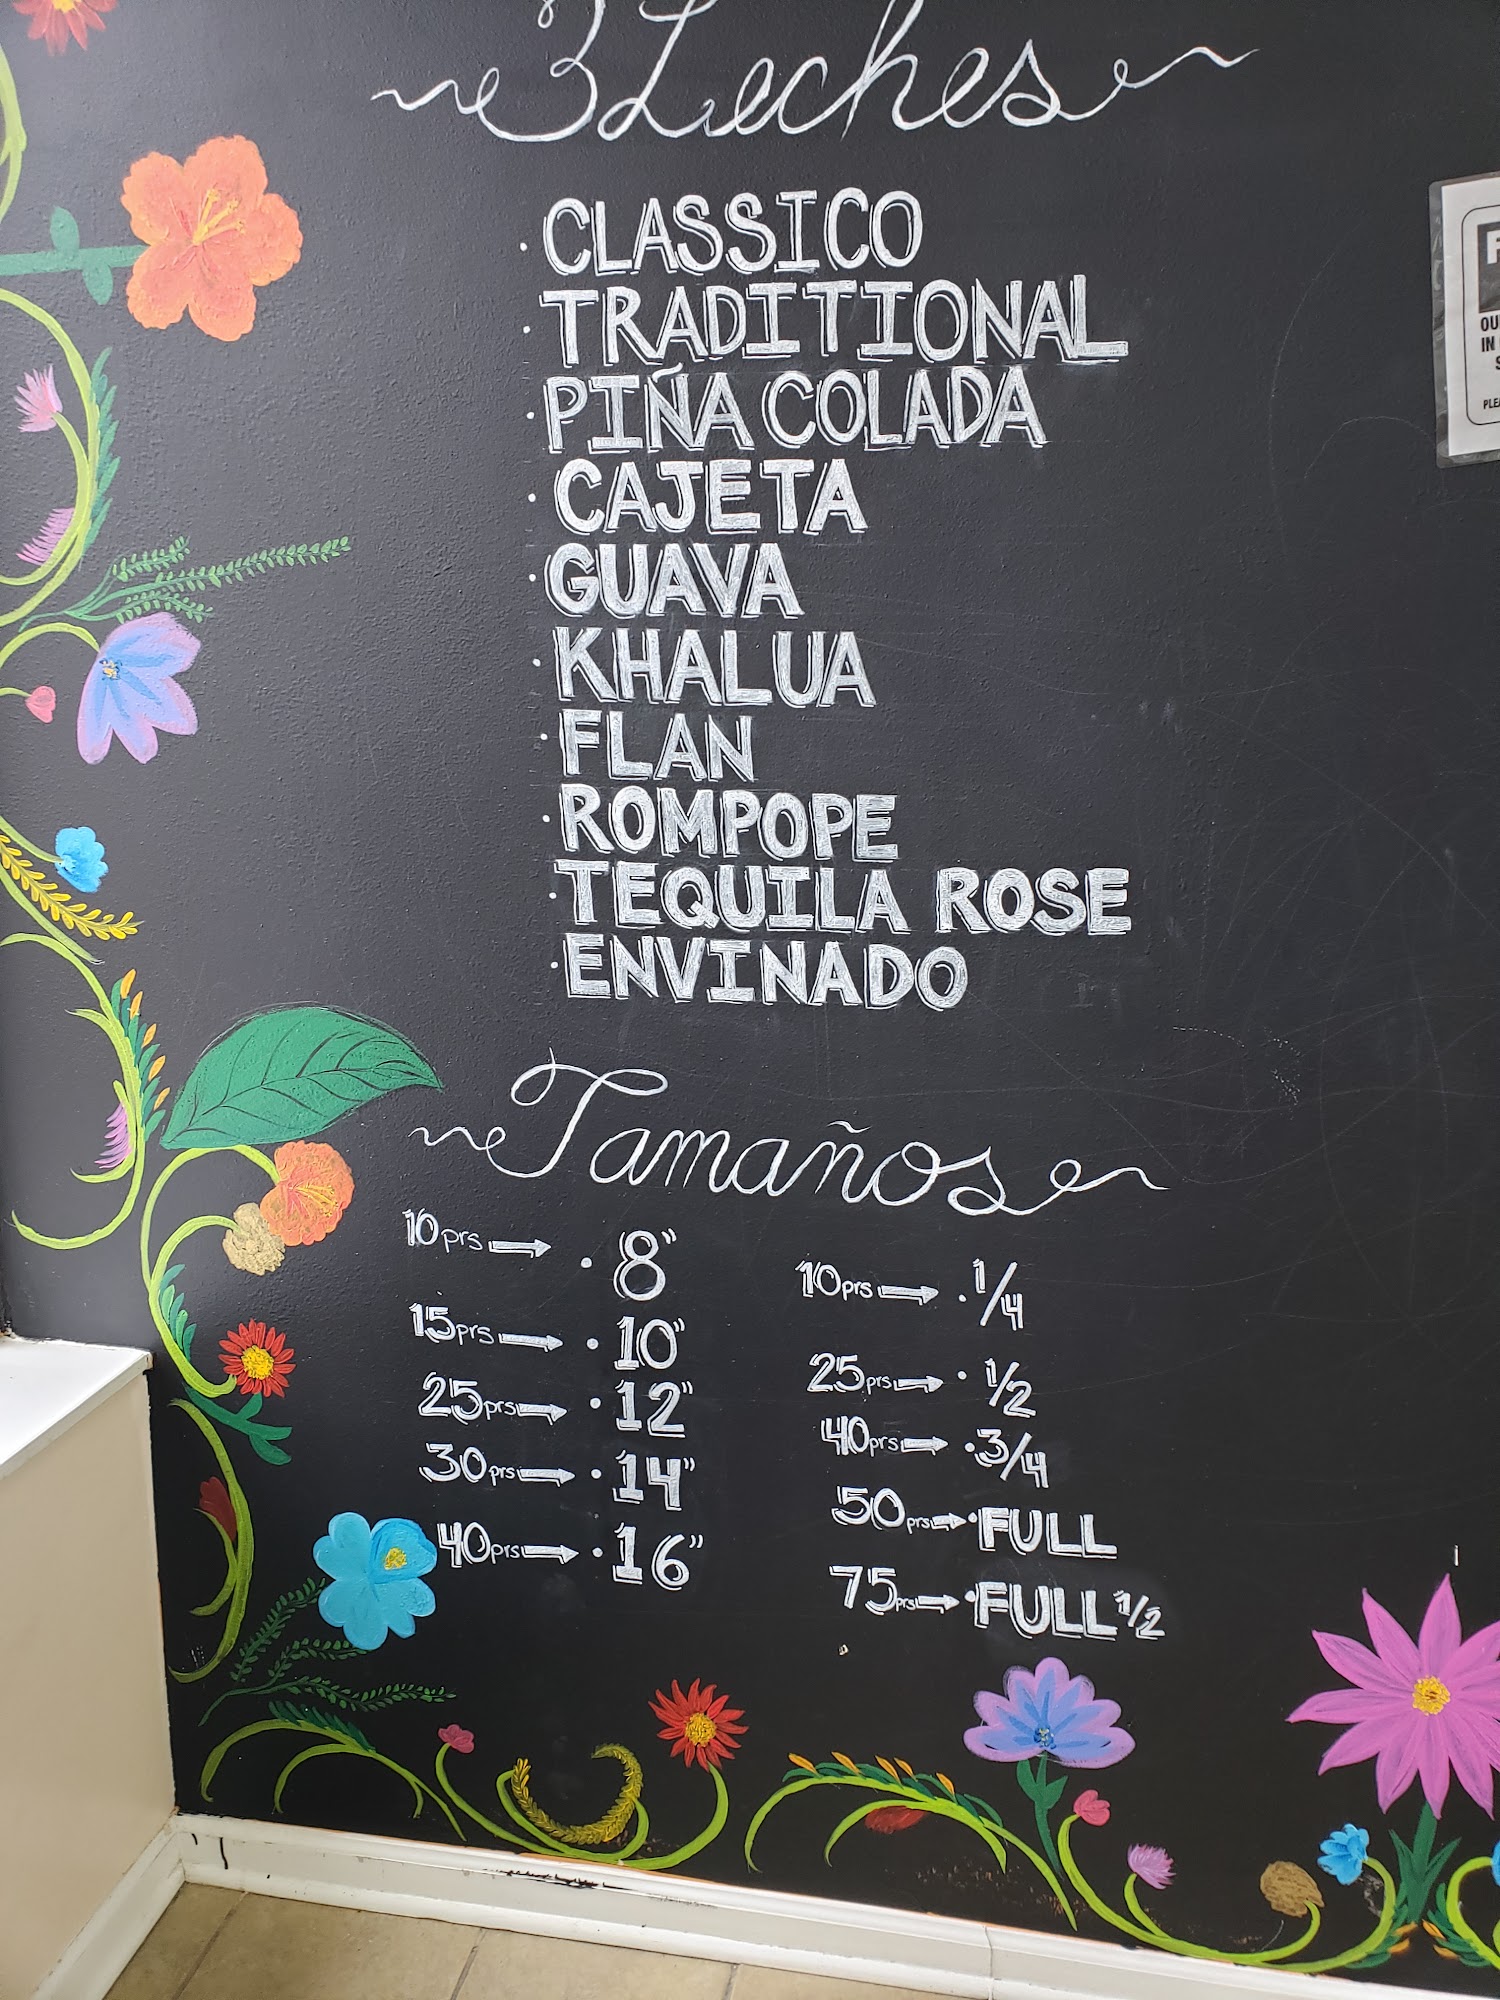 3 Leches
· CLASSICO
· TRADITIONAL
· PIÑA COLADA
· CAJETA
· GUAVA
· KHALUA
· FLAN
· ROMPOPE
· TEQUILA ROSE
· ENVINADO
Tamaños
10prs → · 8"
15prs → · 10"
25prs → · 12"
30prs → · 14"
40prs → · 16"
10prs → · 1/4
25prs → · 1/2
40prs → · 3/4
50prs → · FULL
75prs → · FULL 1/2
OU
IN
S
PLEA